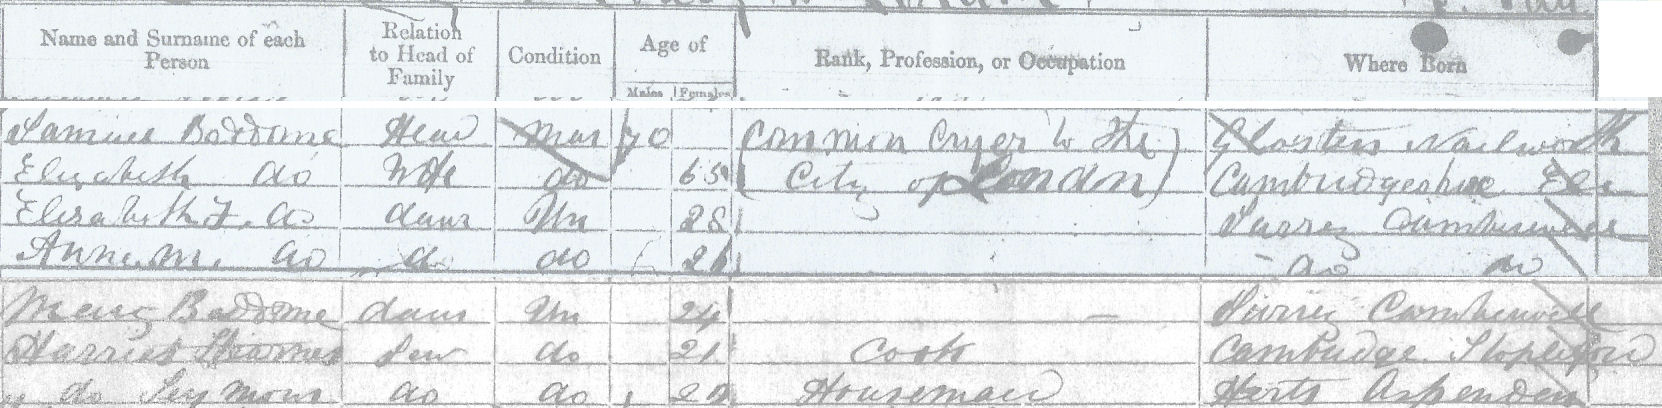 Name and Surname of each Person
Relation to Head of Family
Condition
Age of
Males Females
Rank, Profession, or Occupation
Where Born
Samuel Beddome Head Mar 70 Common Cryer to the Gloster Nailworth
Elizabeth do Wife do 65 City of London Cambridgeshire Ely
Elizabeth F. do daur Un 28 Surrey Camberwell
Anne M. do do do 26 do do
Mary Beddome daur Un 24 Surrey Camberwell
Harriet Ser do 21 Cook Cambridge Stapleford
do Seymour do do Housemaid Herts Aspenden